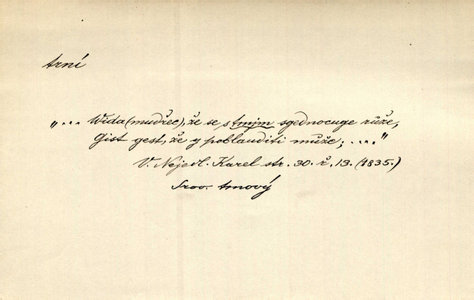 trní
„... Wida (mudřec), že se s trnjm sgednocuge růže,
Gist gest, že y poblauditi může; ....“
V. Nejedl. Karel str. 30. ř. 13. (1835.)
Srov. trnový